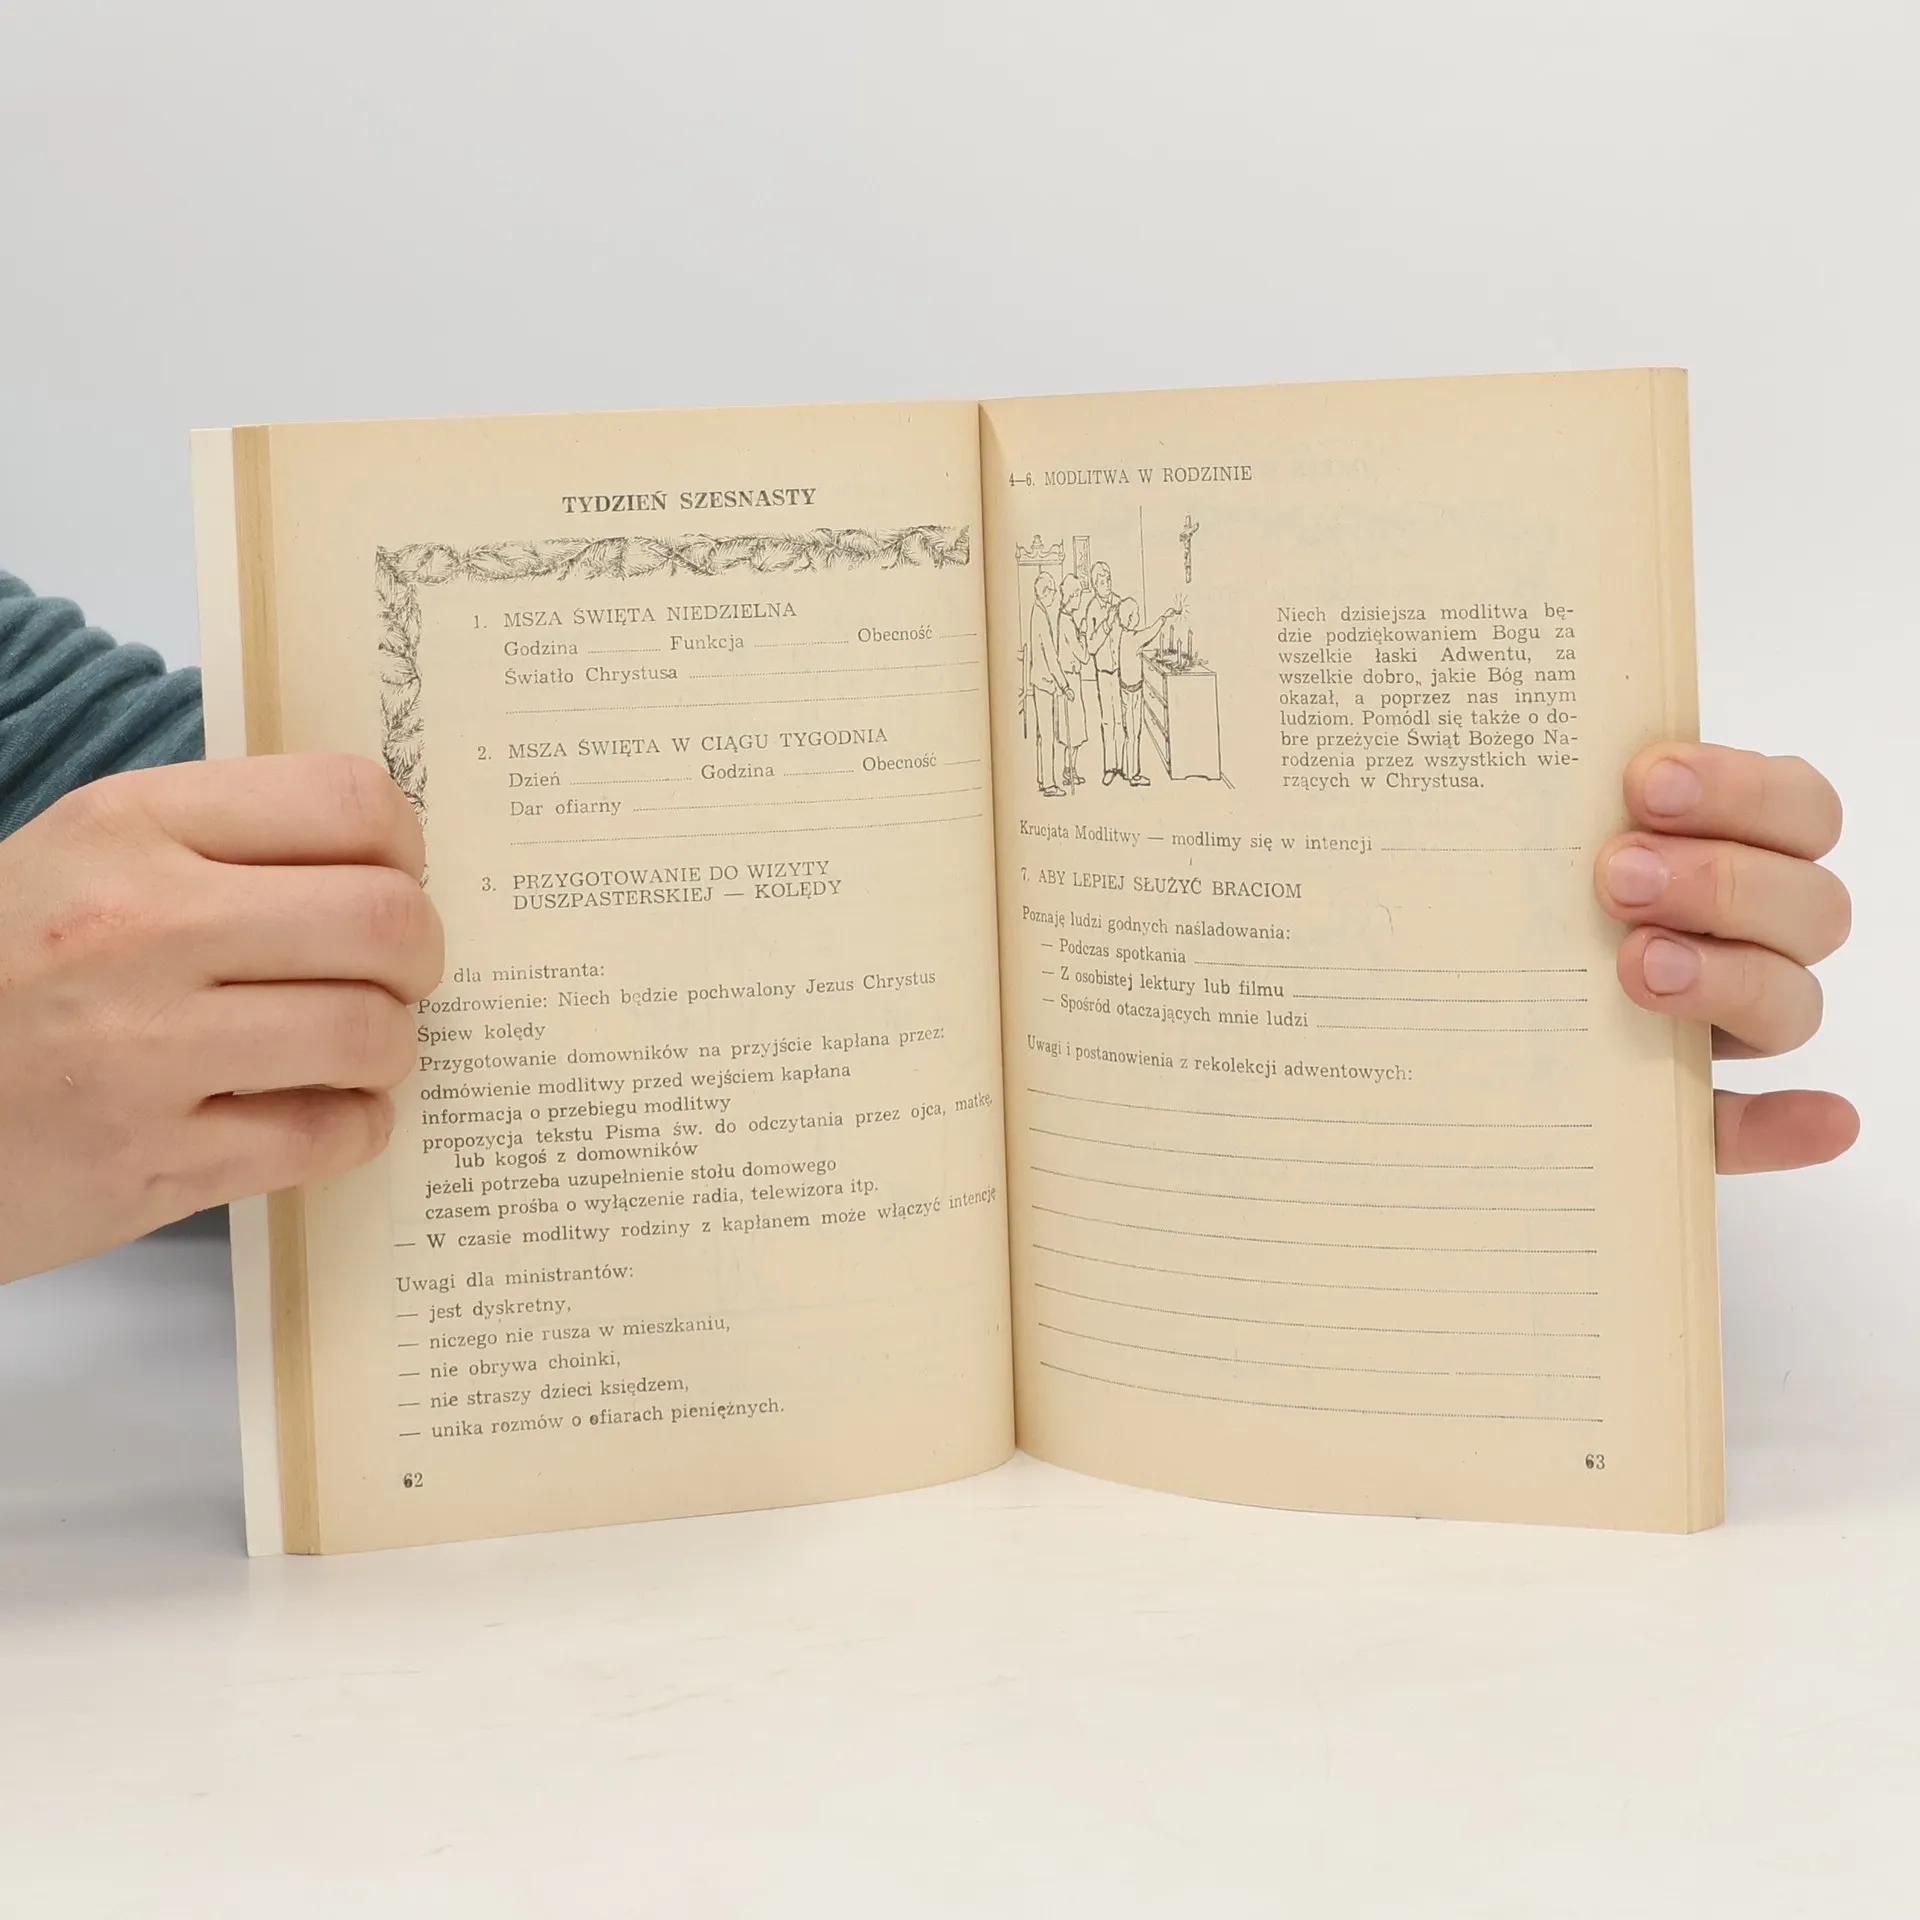 TYDZIEŃ SZESNASTY
1. MSZA ŚWIĘTA NIEDZIELNA
Godzina ............ Funkcja ............ Obecność ......
Światło Chrystusa ............
2. MSZA ŚWIĘTA W CIĄGU TYGODNIA
Dzień ............ Godzina ............ Obecność ......
Dar ofiarny ............
3. PRZYGOTOWANIE DO WIZYTY
DUSZPASTERSKIEJ — KOLĘDY
dla ministranta:
Pozdrowienie: Niech będzie pochwalony Jezus Chrystus
Śpiew kolędy
Przygotowanie domowników na przyjście kapłana przez:
odmówienie modlitwy przed wejściem kapłana
informacja o przebiegu modlitwy
propozycja tekstu Pisma św. do odczytania przez ojca, matkę,
lub kogoś z domowników
jeżeli potrzeba uzupełnienie stołu domowego
czasem prośba o wyłączenie radia, telewizora itp.
— W czasie modlitwy rodziny z kapłanem może włączyć intencję
Uwagi dla ministrantów:
— jest dyskretny,
— niczego nie rusza w mieszkaniu,
— nie obrywa choinki,
— nie straszy dzieci księdzem,
— unika rozmów o ofiarach pieniężnych.
62
4—6. MODLITWA W RODZINIE
Niech dzisiejsza modlitwa bę-
dzie podziękowaniem Bogu za
wszelkie łaski Adwentu, za
wszelkie dobro, jakie Bóg nam
okazał, a poprzez nas innym
ludziom. Pomódl się także o do-
bre przeżycie Świąt Bożego Na-
rodzenia przez wszystkich wie-
rzących w Chrystusa.
Krucjata Modlitwy — modlimy się w intencji ............
7. ABY LEPIEJ SŁUŻYĆ BRACIOM
Poznaję ludzi godnych naśladowania:
— Podczas spotkania ............
— Z osobistej lektury lub filmu ............
— Spośród otaczających mnie ludzi ............
Uwagi i postanowienia z rekolekcji adwentowych:
63